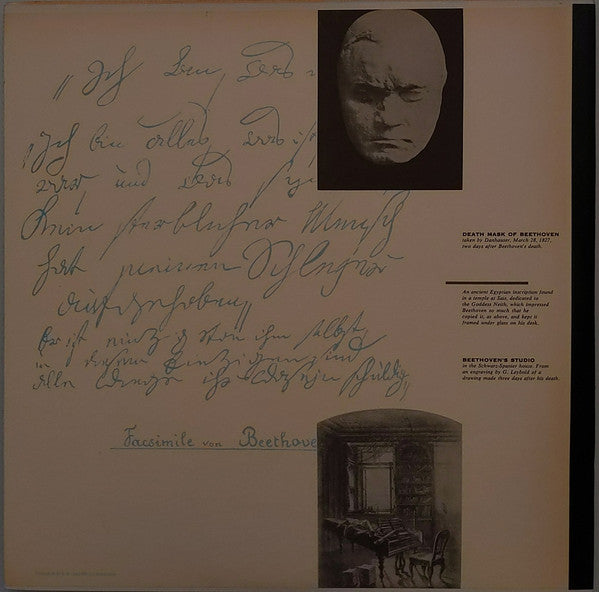 „Ich bin, was
„Ich bin alles, was ist,
war, und was
Kein sterblicher Mensch
hat meinen Schleyer
aufgehoben„
Er ist einzig von ihm selbst,
u. diesem Einzigen sind
alle Dinge ihr Daseyn schuldig„
Facsimile von Beethove
DEATH MASK OF BEETHOVEN
taken by Danhauser, March 28, 1827,
two days after Beethoven's death.
An ancient Egyptian inscription found
in a temple at Sais, dedicated to
the Goddess Neith, which impressed
Beethoven so much that he
copied it, as above, and kept it
framed under glass on his desk.
BEETHOVEN'S STUDIO
in the Schwarz-Spanier house. From
an engraving by G. Leybold of a
drawing made three days after his death.